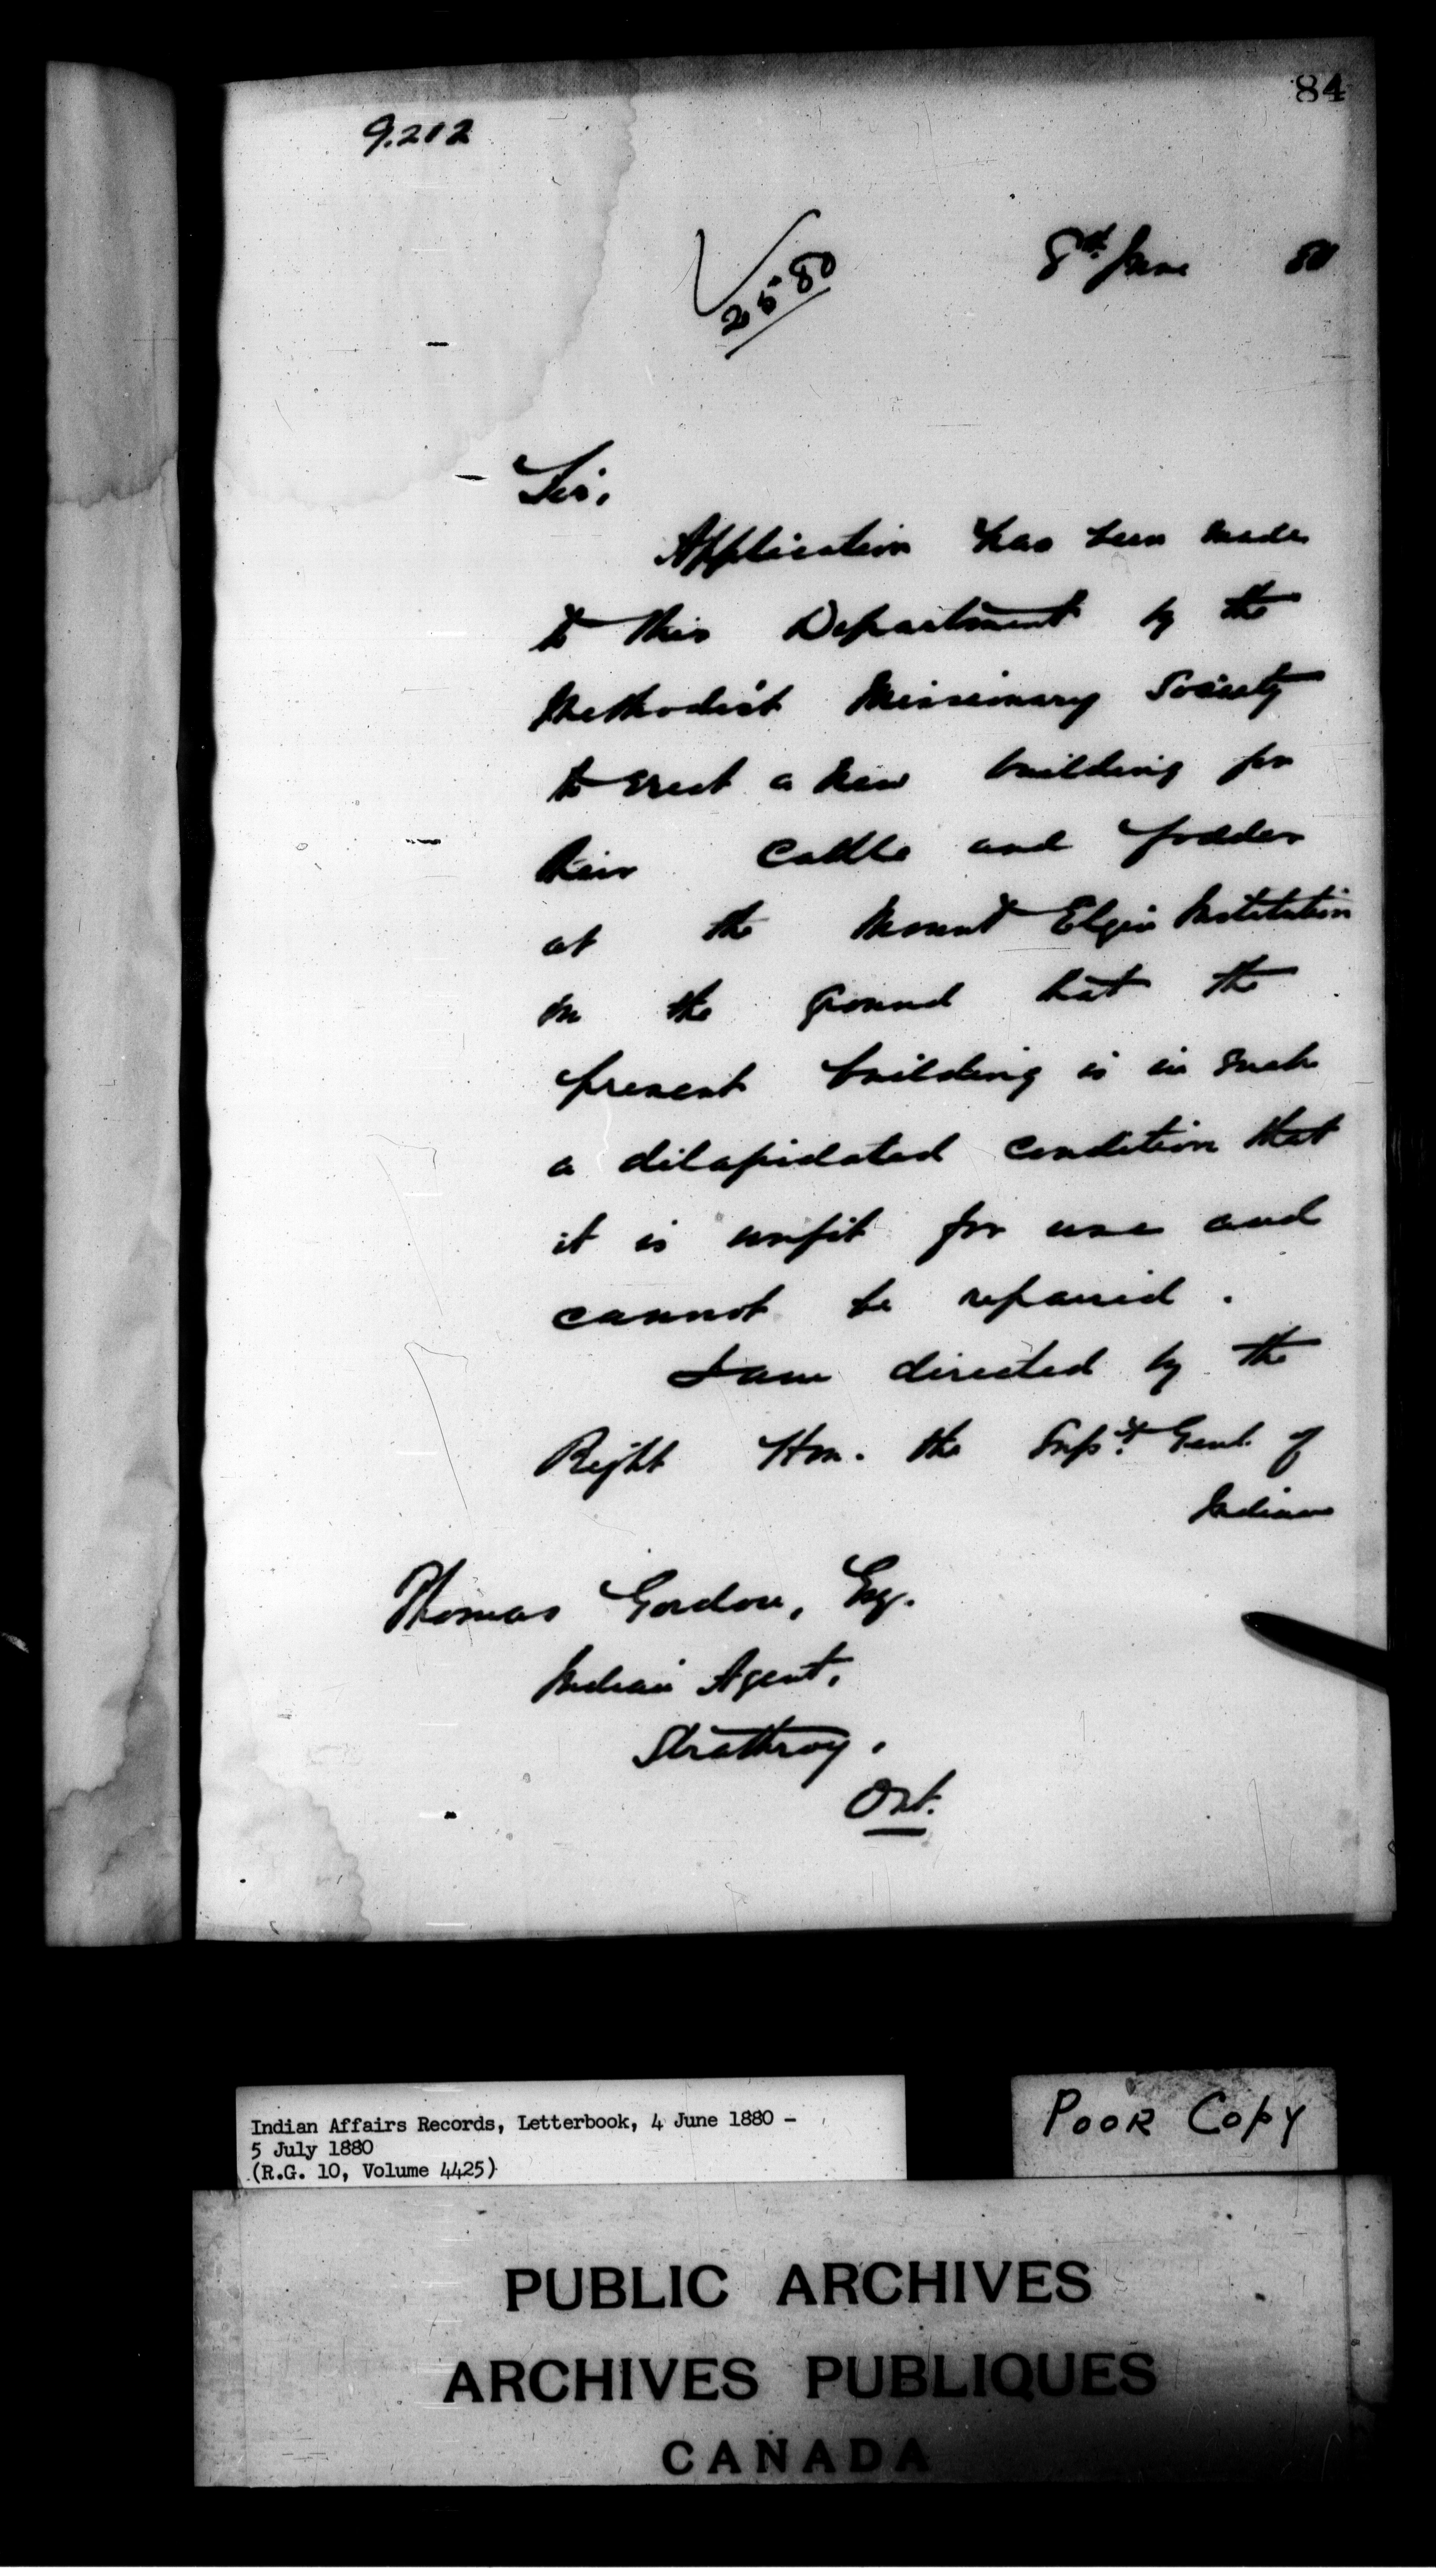 84
9.212
2580
8th June 80
Sir,
Application has been made
to this Department by the
Methodist Missionary Society
to erect a new building for
their cattle and fodder
at the Mount Elgin Institution
on the ground that the
present building is in such
a dilapidated condition that
it is unfit for use and
cannot be repaired.
I am directed by the
Right Hon. the Supt. Genl. of
Indian
Thomas Gordon, Esq.
Indian Agent,
Strathroy,
Ont.
Indian Affairs Records, Letterbook, 4 June 1880 -
5 July 1880
(R.G. 10, Volume 4425)
POOR COPY
PUBLIC ARCHIVES
ARCHIVES PUBLIQUES
CANADA